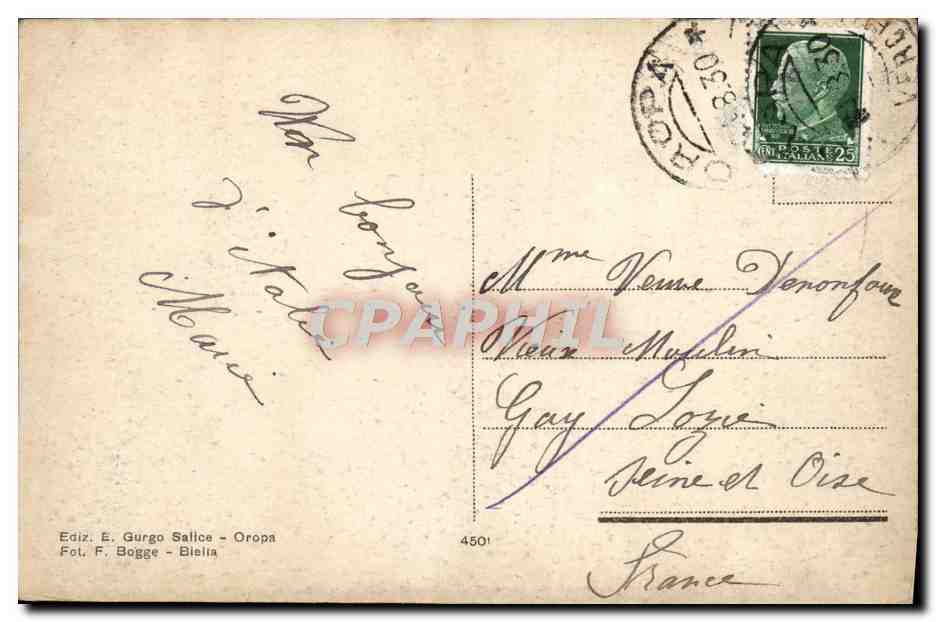 Mon bonjour
d'Italie
Marie
OROPA
8.3.30
POSTE
ITALIANE
CENT 25
Mme Veuve Denonfoux
Vieux Moulin
Gay Lozie
Seine et Oise
France
CPAPHIL
Ediz. E. Gurgo Salice - Oropa
Fot. F. Bogge - Biella
4501